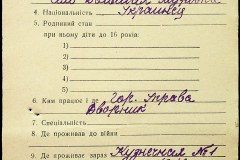 село Большая
4. Національність Украинец
5. Родинний стан
при ньому діти до 16 років.
1)
2)
3)
4)
5)
6. Ким працює і де Гор. Управа
Дворник
7. Спеціяльність
8. Де проживав до війни
9. Де проживає зараз Кузнечная №1